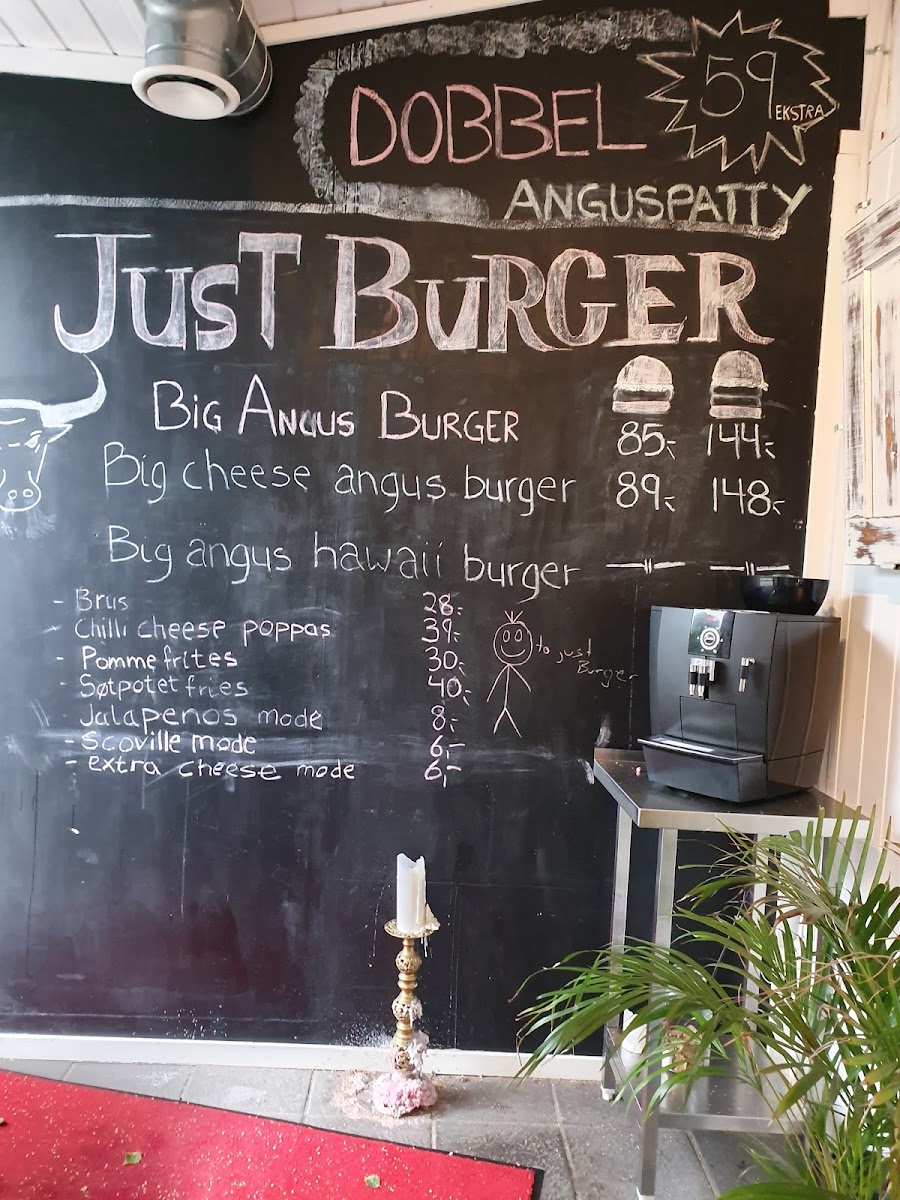 DOBBEL
59
EKSTRA
ANGUSPATTY
JUST BURGER
BIG ANGUS BURGER 85,- 144,-
Big cheese angus burger 89,- 148,-
Big angus hawaii burger —||— —||—
- Brus 28,-
- Chilli cheese poppas 39,-
- Pommefrites 30,-
- Søtpotet fries 40,-
- Jalapenos mode 8,-
- Scoville mode 6,-
- extra cheese mode 6,-
to just
Burger